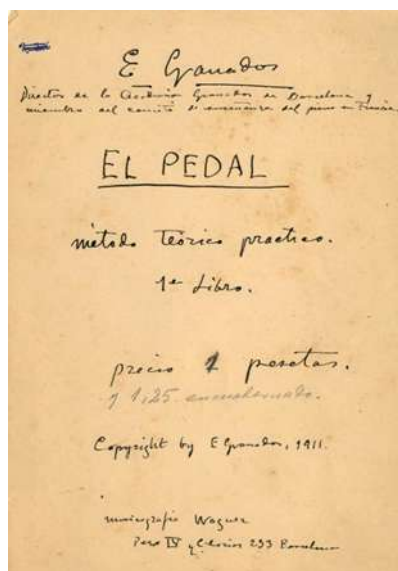 E Granados
Director de la Academia Granados de Barcelona y
miembro del comité de enseñanza del piano en Francia
EL PEDAL
método teórico practico.
1er Libro.
precio 1 pesetas.
y 1,25 encuadernado.
Copyright by E Granados, 1911.
musicografia Wagner
233 Barcelona